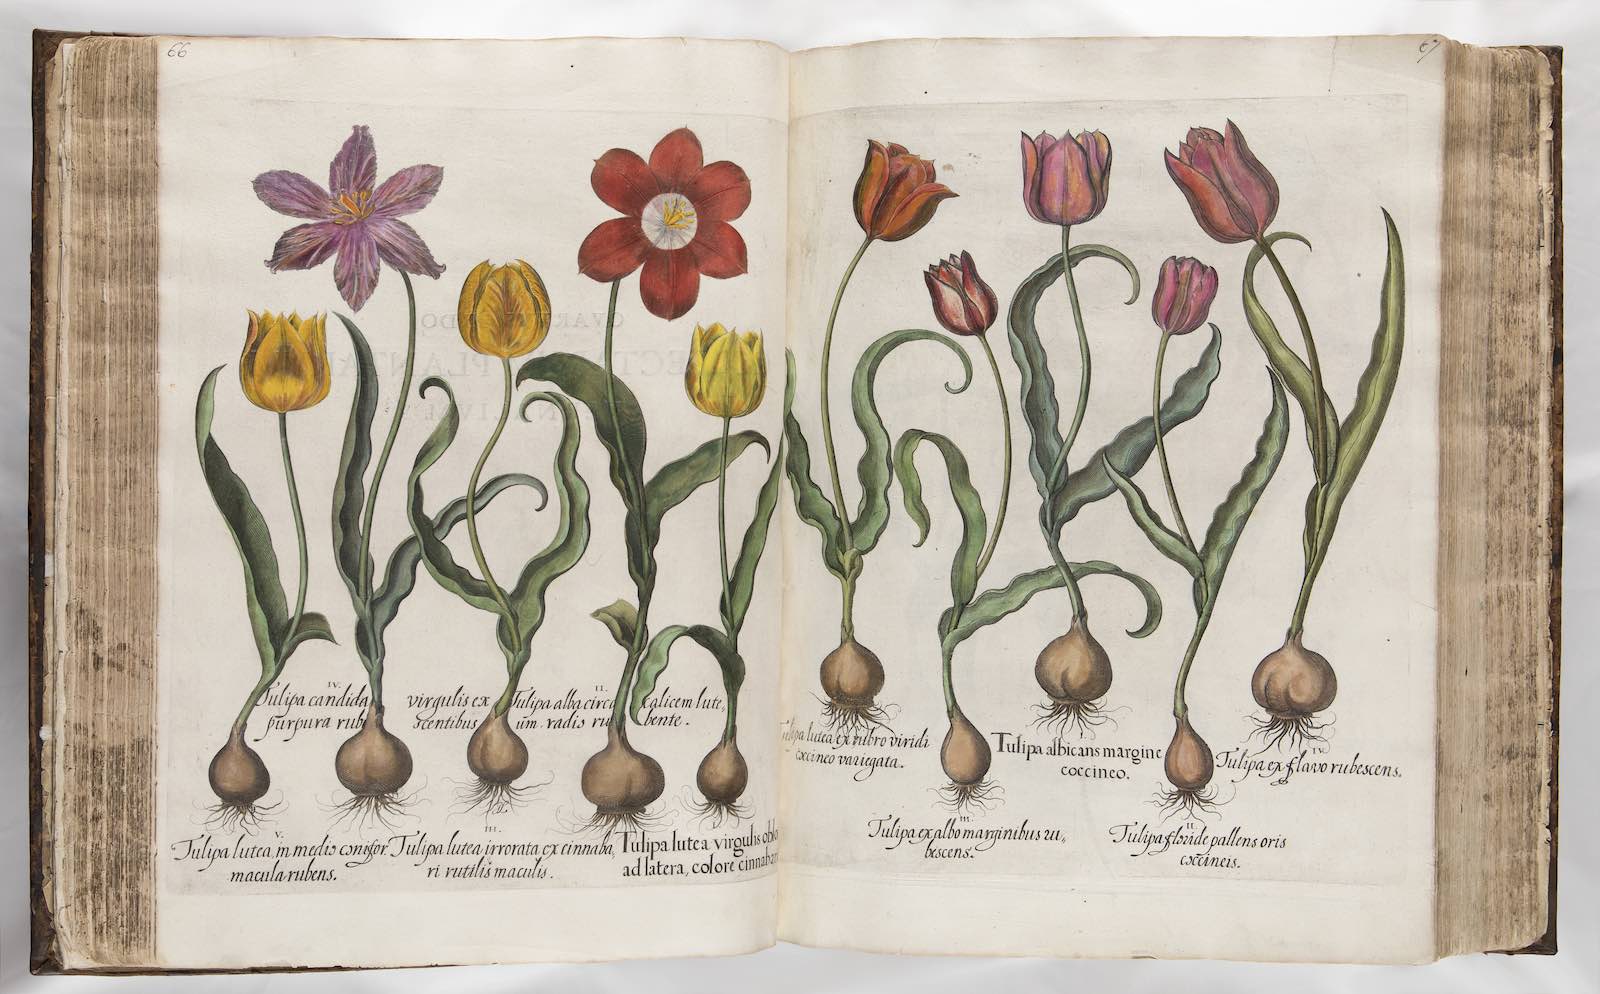 66
67
IV.
Tulipa candida virgulis ex
purpura rubescentibus
II.
Tulipa alba circa calicem lute,
um. radis ru bente.
V.
Tulipa lutea, in medio conifor
macula rubens.
III.
Tulipa lutea irrorata ex cinnaba,
ri rutilis maculis.
I.
Tulipa lutea virgulis oblo
ad latera, colore cinnabar
Tulipa lutea ex rubro viridi
coccineo variegata.
III.
Tulipa ex albo marginibus ru,
bescens.
Tulipa albicans margine
coccineo.
II.
Tulipa floride pallens oris
coccineis.
IV.
Tulipa ex flavo rubescens.